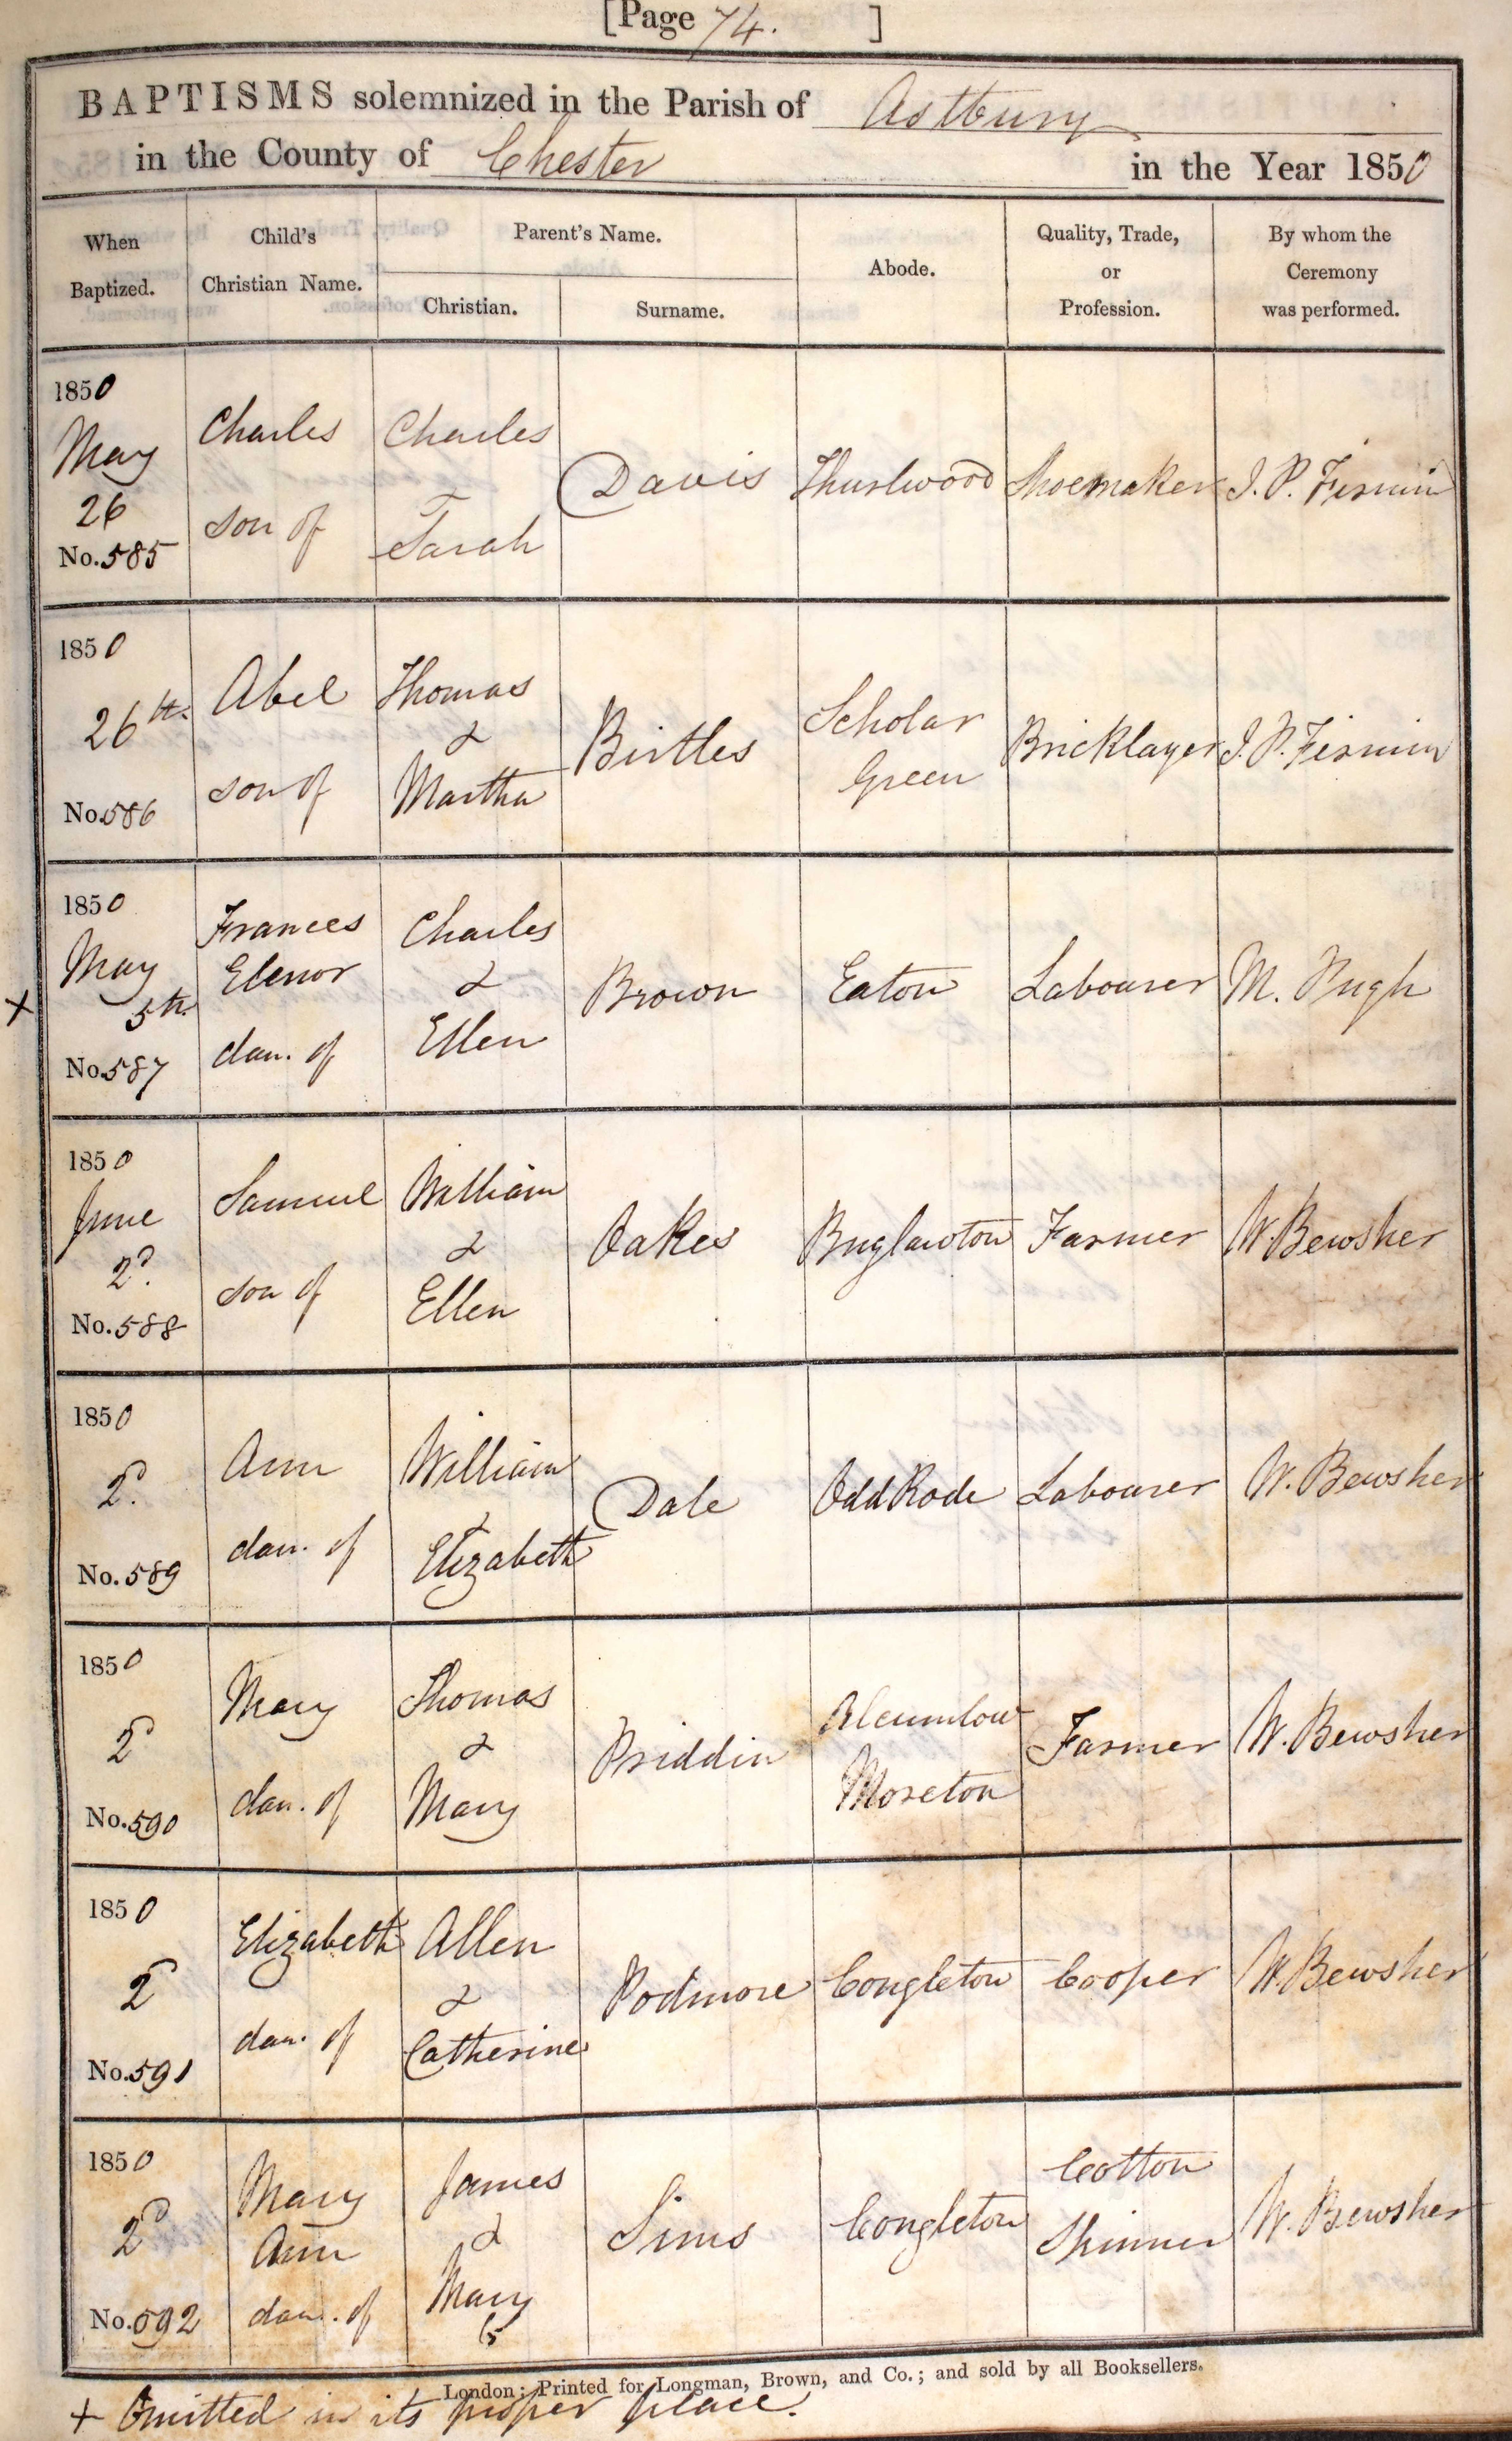 [Page 74. ]
BAPTISMS solemnized in the Parish of Astbury
in the County of Chester in the Year 1850
When Baptized.
Child's Christian Name.
Parent's Name.
Christian.
Surname.
Abode.
Quality, Trade, or Profession.
By whom the Ceremony was performed.
1850
May
26
No. 585
Charles
son of
Charles
Sarah
Davis
Thurlwood
Shoemaker
J. P. Firmin
1850
26th.
No. 586
Abel
son of
Thomas
&
Martha
Birtles
Scholar
Green
Bricklayer
J. P. Firmin
+
1850
May
5th.
No. 587
Frances
Elenor
dau. of
Charles
&
Ellen
Brown
Eaton
Labourer
M. Pugh
1850
June
2d.
No. 588
Samuel
son of
William
&
Ellen
Oakes
Buglawton
Farmer
W. Bewsher
1850
2d.
No. 589
Ann
dau. of
William
&
Elizabeth
Dale
Odd Rode
Labourer
W. Bewsher
1850
2d
No. 590
Mary
dau. of
Thomas
&
Mary
Priddin
Moreton
Farmer
W. Bewsher
1850
2d
No. 591
Elizabeth
dau. of
Allen
&
Catherine
Podmore
Congleton
Cooper
W. Bewsher
1850
2d
No. 592
Mary
Ann
dau. of
James
&
Mary
Sims
Congleton
Cotton
Skinner
W. Bewsher
London: Printed for Longman, Brown, and Co.; and sold by all Booksellers.
+ Omitted in its proper place.